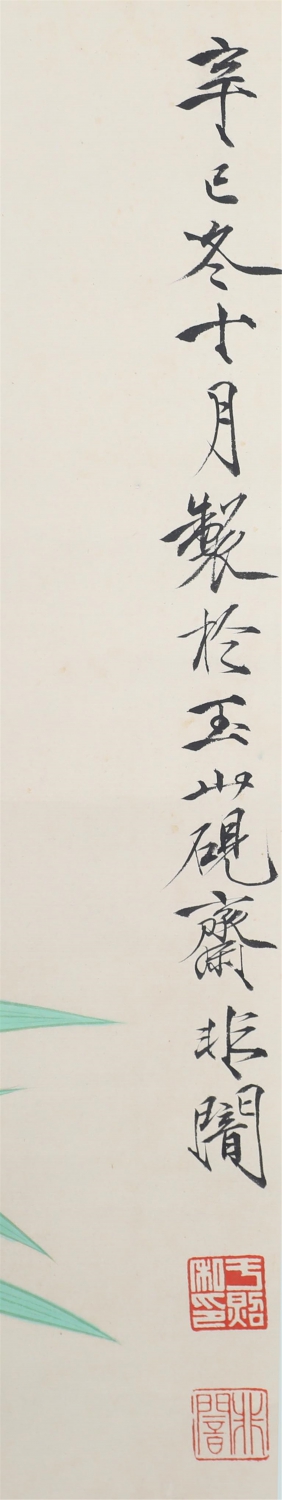 辛巳冬十月製於玉山硯齋非闇
于照私印
非闇